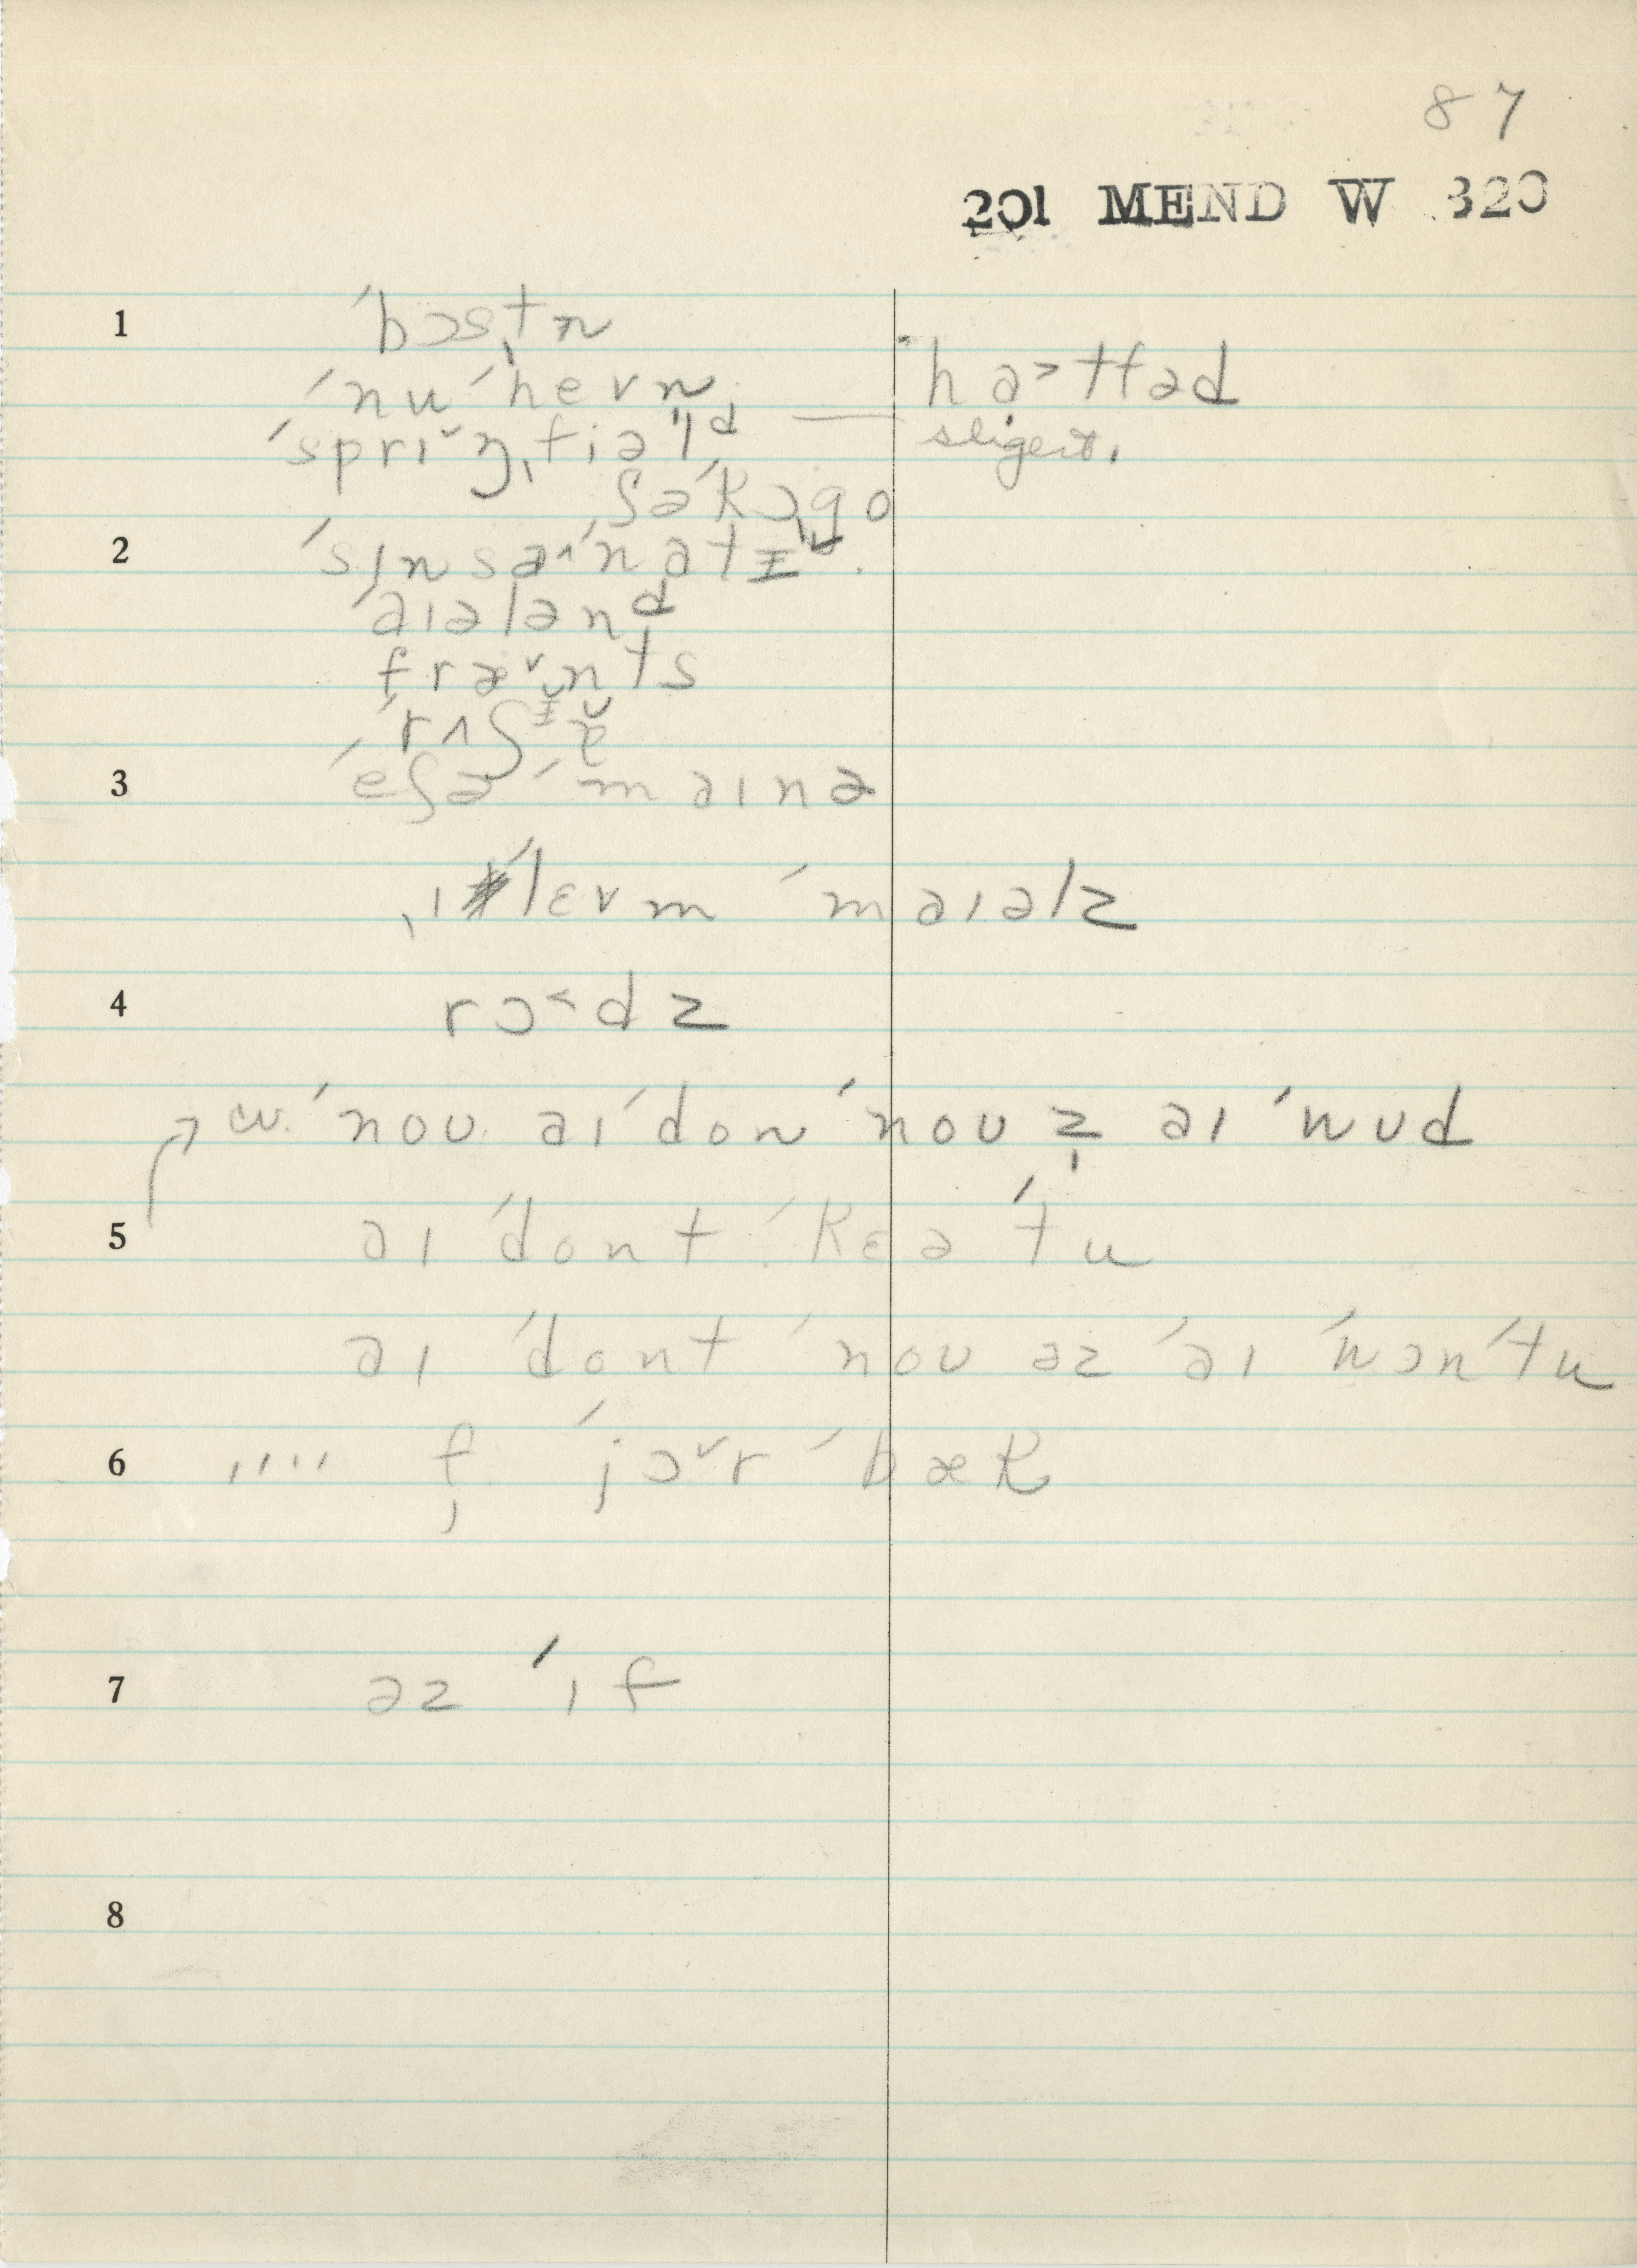 87
201 MEND W 320
1 ˈbɔstn̩
ˈnuˈhevn̩
ˈhɑ˃tfəd
ˈsprɪ˅ŋˌfiəl̩ᵈ —
ʃəˈkɔgo
2 ˈsɪnsəˈnatɪ
ˈaɪələnᵈ
fræ˅nts
ˈrʌʃɪ̆ə̆
3 ˈeʃə ˈmaɪnə
ɪˈlɛvm̩ ˈmaɪəlz
4 rɔ˂dz
w. ˈnoʊ aɪ ˈdon ˈnoʊ z̩ aɪ ˈwʊd
5 aɪ ˈdont ˈkɛə ˈtu
aɪ ˈdont ˈnoʊ əz ˈaɪ ˈwɔnˈtu
6 ,,,, f̩ ˈjɔ˅r ˈbæk
7 əz ˈɪf
8